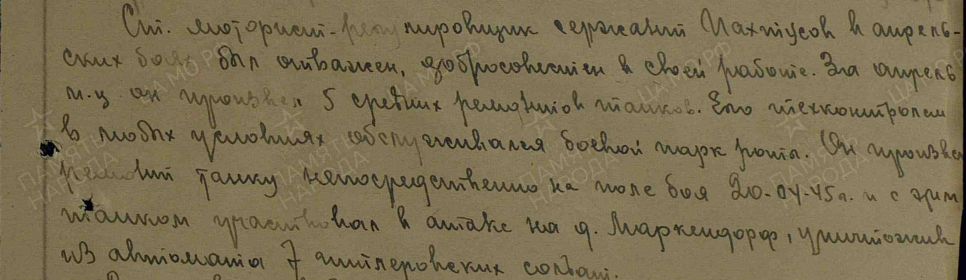 Ст. моторист-регулировщик сержант Пахтусов в апрель-
ских боях был отважен, добросовестен в своей работе. За апрель
м-ц он произвел 5 средних ремонтов танков. Его техконтролем
в любых условиях обслуживался боевой парк роты. Он произвел
ремонт танку непосредственно на поле боя 20-04-45 г. и с этим
танком участвовал в атаке на д. Маркендорф, уничтожив
из автомата 7 гитлеровских солдат.